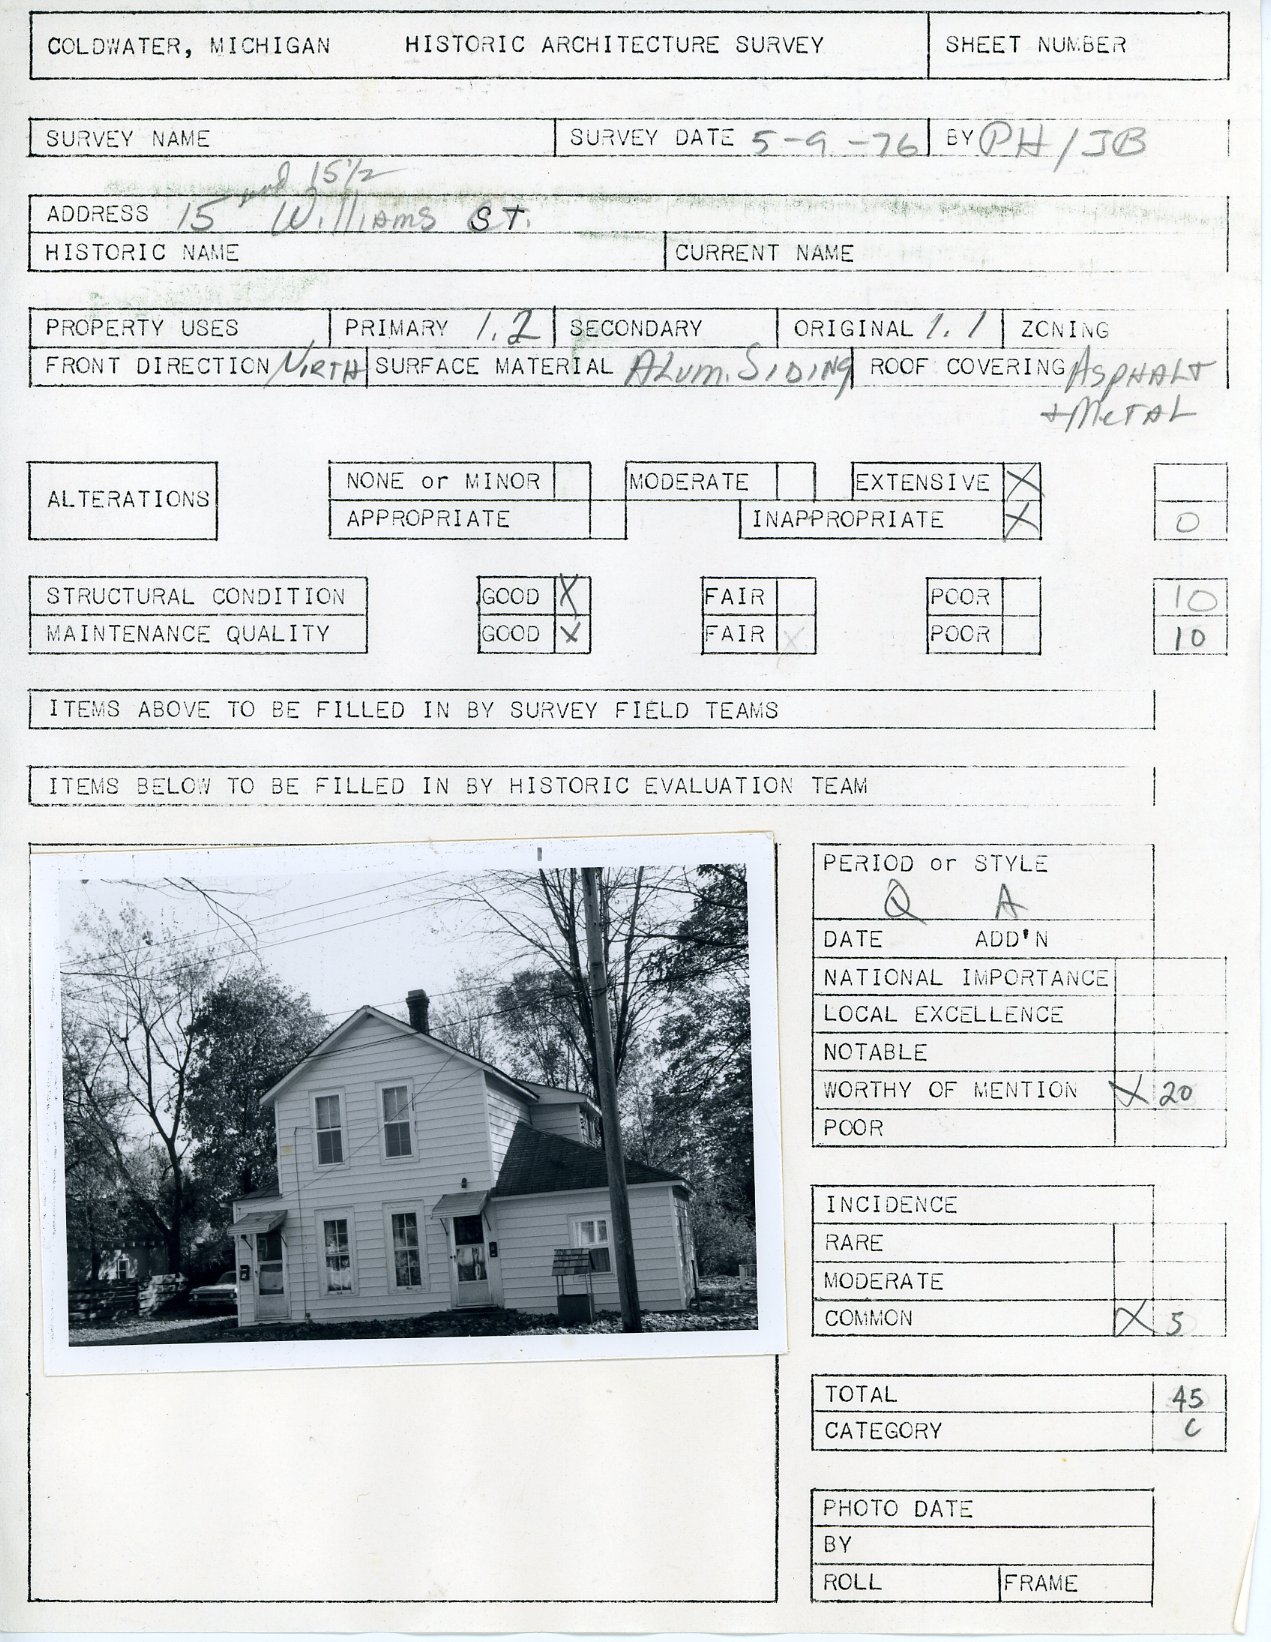 COLDWATER, MICHIGAN HISTORIC ARCHITECTURE SURVEY SHEET NUMBER
SURVEY NAME SURVEY DATE 5-9-76 BY PH/JB
and 15½
ADDRESS 15 Williams St.
HISTORIC NAME CURRENT NAME
PROPERTY USES PRIMARY 1.2 SECONDARY ORIGINAL 1.1 ZONING
FRONT DIRECTION NIRTH SURFACE MATERIAL ALUM. SIDING ROOF COVERING ASPHALT
+ METAL
ALTERATIONS NONE or MINOR MODERATE EXTENSIVE X
APPROPRIATE INAPPROPRIATE X 0
STRUCTURAL CONDITION GOOD X FAIR POOR 10
MAINTENANCE QUALITY GOOD X FAIR X POOR 10
ITEMS ABOVE TO BE FILLED IN BY SURVEY FIELD TEAMS
ITEMS BELOW TO BE FILLED IN BY HISTORIC EVALUATION TEAM
PERIOD or STYLE
Q A
DATE ADD'N
NATIONAL IMPORTANCE
LOCAL EXCELLENCE
NOTABLE
WORTHY OF MENTION X 20
POOR
INCIDENCE
RARE
MODERATE
COMMON X 5
TOTAL 45
CATEGORY C
PHOTO DATE
BY
ROLL FRAME